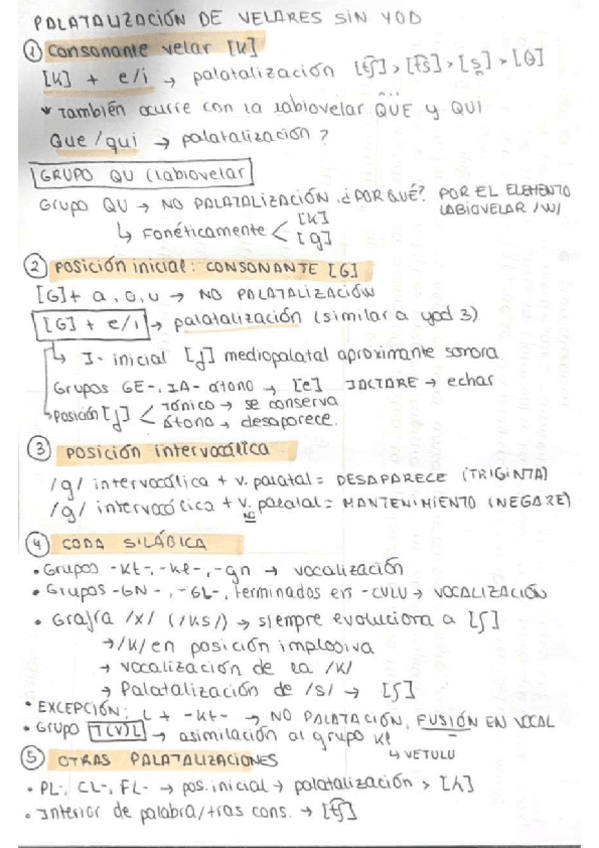 PALATALIZACIÓN DE VELARES SIN YOD
① Consonante velar [K]
[K] + e/i → palatalización [t͡ʃ] > [t͡s] > [s̪] > [θ]
* También ocurre con la labiovelar QUE y QUI
Que/qui → palatalización?
GRUPO QU (labiovelar
Grupo QU → NO PALATALIZACIÓN. ¿POR QUÉ? POR EL ELEMENTO
LABIOVELAR /W/
↳ Fonéticamente < [k]
[g]
② Posición inicial: CONSONANTE [G]
[G] + a, o, u → NO PALATALIZACIÓN
[G] + e/i → palatalización (similar a yod 3)
↳ I- inicial [ʝ] mediopalatal aproximante sonora
Grupos GE-, IA- átono → [e] JACTARE → echar
↳ Posición [ʝ] < Tónico → se conserva
átono → desaparece.
③ posición intervocálica
/g/ intervocálica + v. palatal = DESAPARECE (TRIGINTA)
/g/ intervocócica + v. NO palatal = MANTENIMIENTO (NEGARE)
④ CODA SILÁBICA
• Grupos -Kt-, -kl-, -gn → vocalización
• Grupos -GN-, -GL-, terminados en -CULU → VOCALIZACIÓN
• Grafía /x/ (/ks/) → siempre evoluciona a [ʃ]
→ /K/ en posición implosiva
→ vocalización de la /K/
→ Palatalización de /s/ → [ʃ]
• EXCEPCIÓN: L + -kt- → NO PALATACIÓN, FUSIÓN EN VOCAL
• Grupo T(V)L → asimilación al grupo Kl
↳ VETULU
⑤ OTRAS PALATALIZACIONES
• PL-, CL-, FL- → pos. inicial → palatalización > [ʎ]
• Interior de palabra/tras cons. → [t͡ʃ]